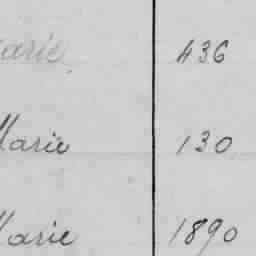 Marie 436
Marie 130
Marie 1890